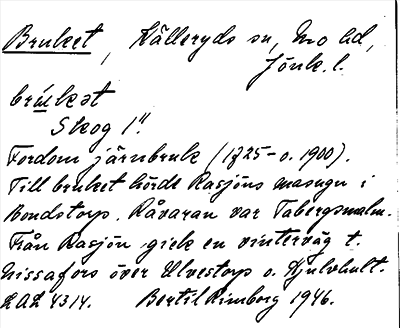 Bruket, Källeryds sn, Mo hd,
Jönk. l.
brúkət
Skog 1".
Fordom järnbruk (1725-o. 1900).
Till bruket hörde Rasjöns masugn i
Bondstorp. Råvaran var Tabergsmalm.
Från Rasjön gick en vinterväg t.
Nissafors över Ulvestorp o. Hjulhult.
LAL 4314. Bertil Rimborg 1946.